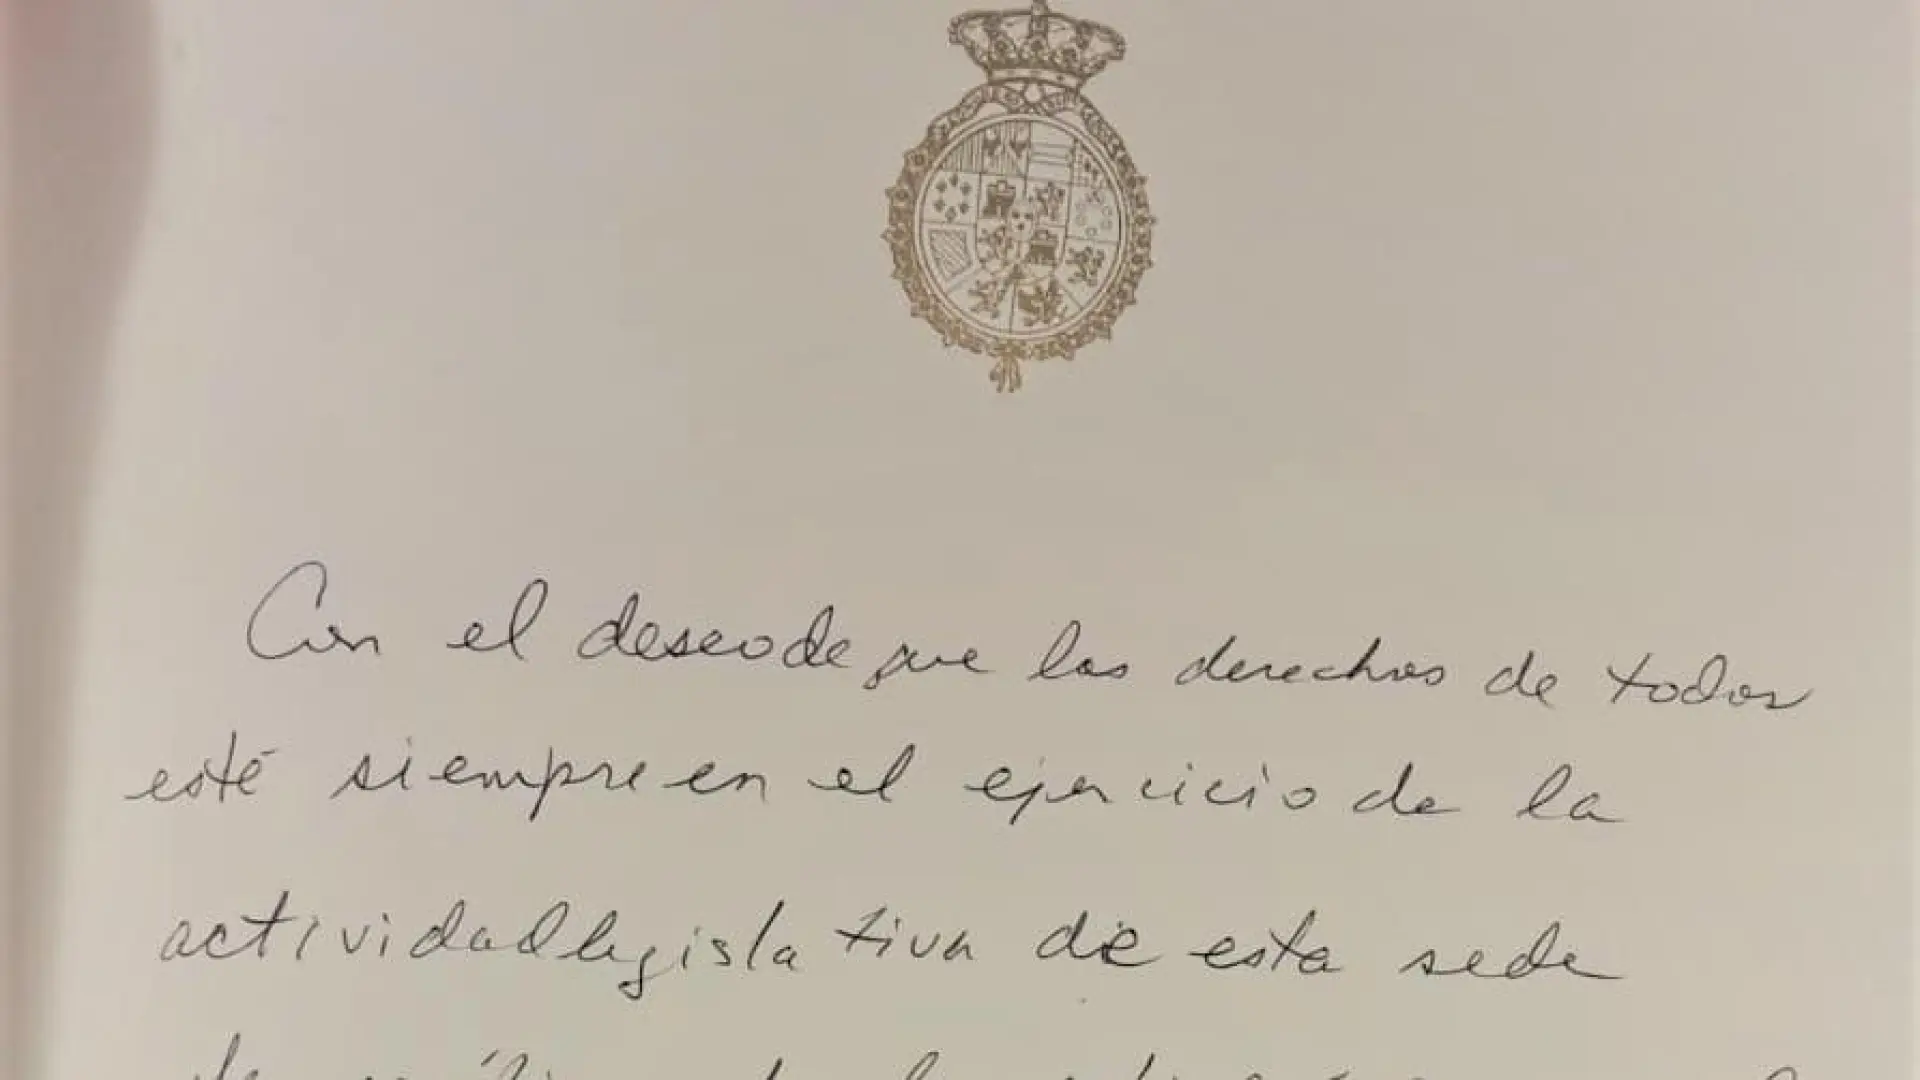 Con el deseo de que los derechos de todos
esté siempre en el ejercicio de la
actividad legislativa de esta sede